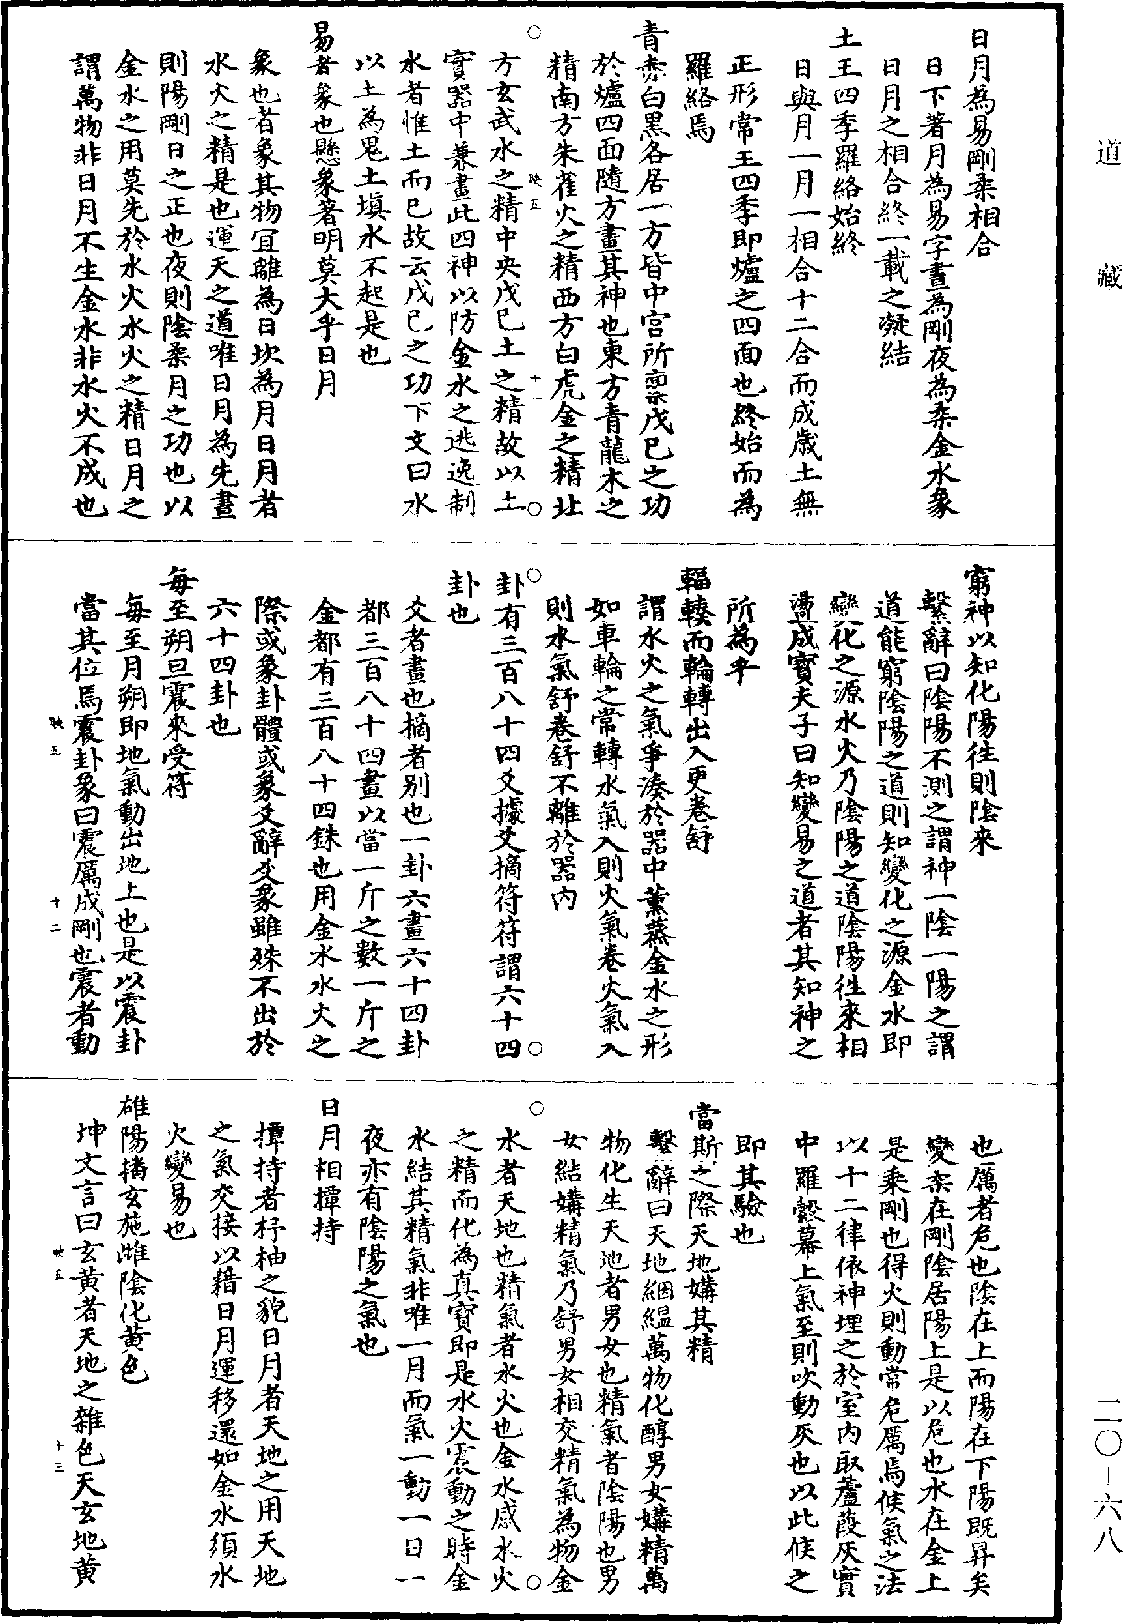 道藏
日月為易剛柔相合
日下著月為易字晝為剛夜為柔金水象
日月之相合終一載之凝結
土王四季羅絡始終
日與月一月一相合十二合而成歲土無
正形常王四季即爐之四面也終始而為
羅絡焉
青赤白黑各居一方皆中宮所稟戊巳之功
於爐四面隨方畫其神也東方青龍木之
精南方朱雀火之精西方白虎金之精北
方玄武水之精中央戊巳土之精故以土
實器中兼畫此四神以防金水之逃逸制
水者惟土而巳故云戊巳之功下文曰水
以土為鬼土填水不起是也
易者象也懸象著明莫大乎日月
象也者象其物宜離為日坎為月日月者
水火之精是也運天之道唯日月為先晝
則陽剛日之正也夜則陰柔月之功也以
金水之用莫先於水火水火之精日月之
謂萬物非日月不生金水非水火不成也
映五
十一
窮神以知化陽往則陰來
繫辭曰陰陽不測之謂神一陰一陽之謂
道能窮陰陽之道則知變化之源金水即
變化之源水火乃陰陽之道陰陽往來相
盪成寶夫子曰知變易之道者其知神之
所為乎
輻輳而輪轉出入更卷舒
謂水火之氣爭湊於器中薰蒸金水之形
如車輪之常轉水氣入則火氣卷火氣入
則水氣舒卷舒不離於器內
卦有三百八十四爻據爻摘符符謂六十四
卦也
爻者畫也摘者別也一卦六畫六十四卦
都三百八十四畫以當一斤之數一斤之
金都有三百八十四銖也用金水水火之
際或象卦體或象爻辭爻象雖殊不出於
六十四卦也
每至朔旦震來受符
每至月朔即地氣動出地上也是以震卦
當其位焉震卦象曰震厲成剛也震者動
映五
十二
也厲者危也陰在上而陽在下陽既昇矣
變柔在剛陰居陽上是以危也水在金上
是乘剛也得火則動常危厲焉候氣之法
以十二律依神埋之於室內取蘆葭灰實
中羅縠幕上氣至則吹動灰也以此候之
即其驗也
當斯之際天地媾其精
繫辭曰天地絪縕萬物化醇男女媾精萬
物化生天地者男女也精氣者陰陽也男
女結媾精氣乃舒男女相交精氣為物金
水者天地也精氣者水火也金水感水火
之精而化為真寶即是水火震動之時金
水結其精氣非唯一月而氣一動一日一
夜亦有陰陽之氣也
日月相撢持
撢持者杼柚之貌日月者天地之用天地
之氣交接以藉日月運移還如金水須水
火變易也
雄陽播玄施雌陰化黃色
坤文言曰玄黃者天地之雜色天玄地黃
映五
十三
二〇—六八